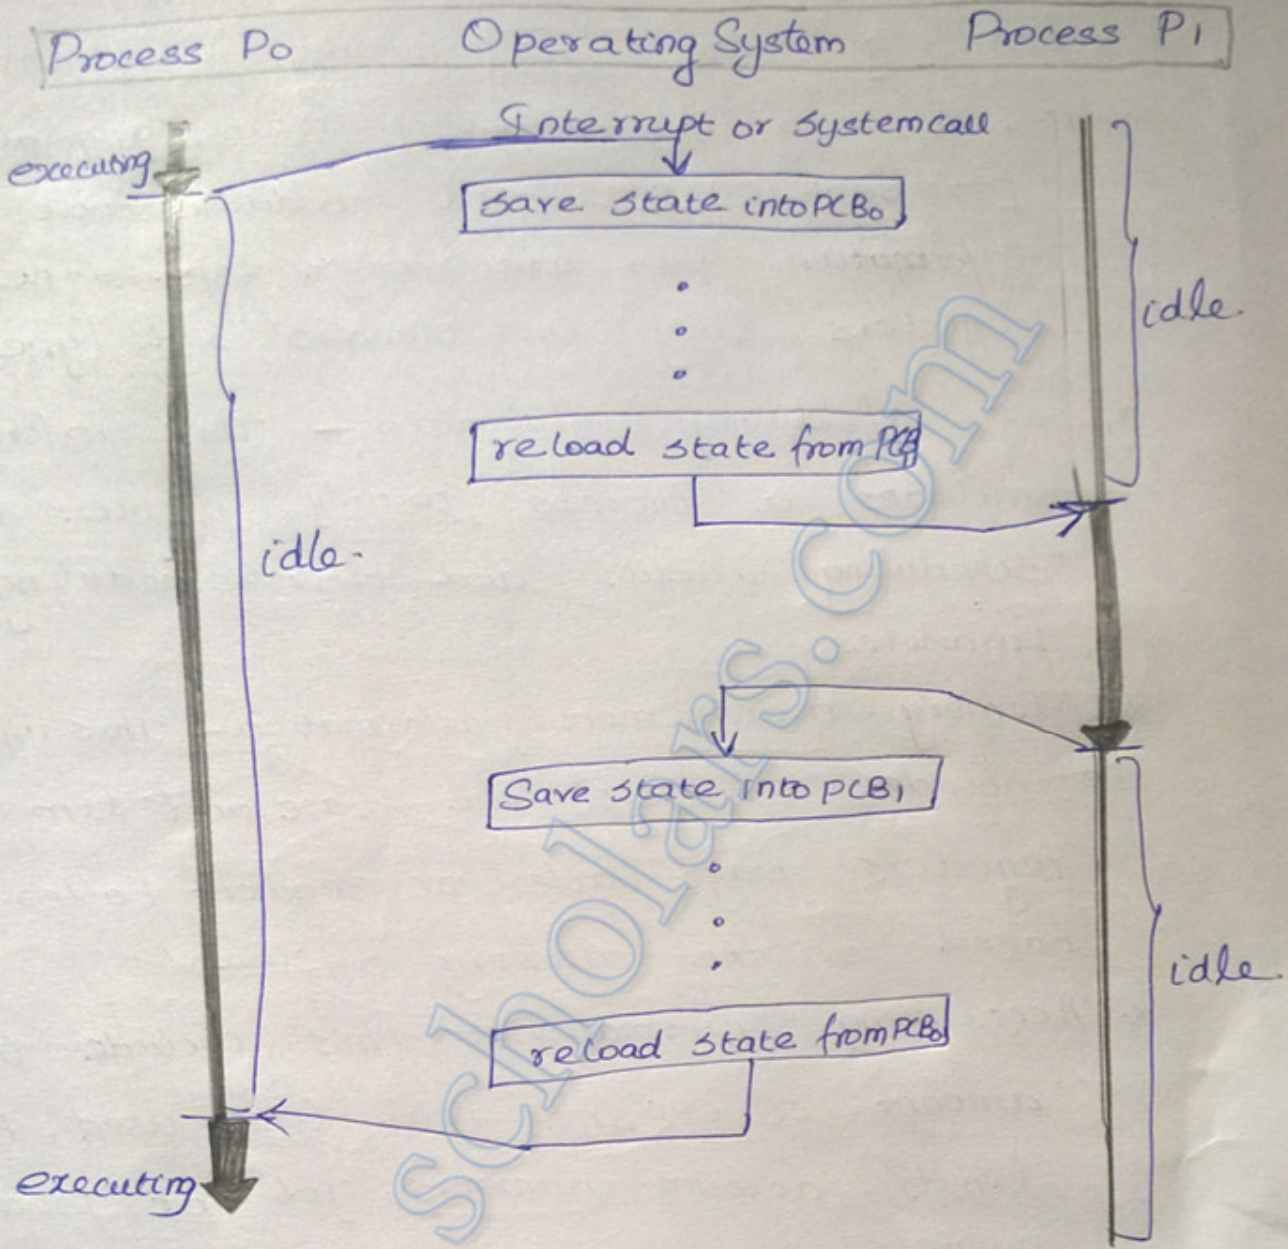 Process P0 Operating System Process P1
Interrupt or systemcall
executing
save state into PCB0
idle.
reload state from PCB1
idle.
Save state into PCB1
idle
reload state from PCB0
executing
scholars.com